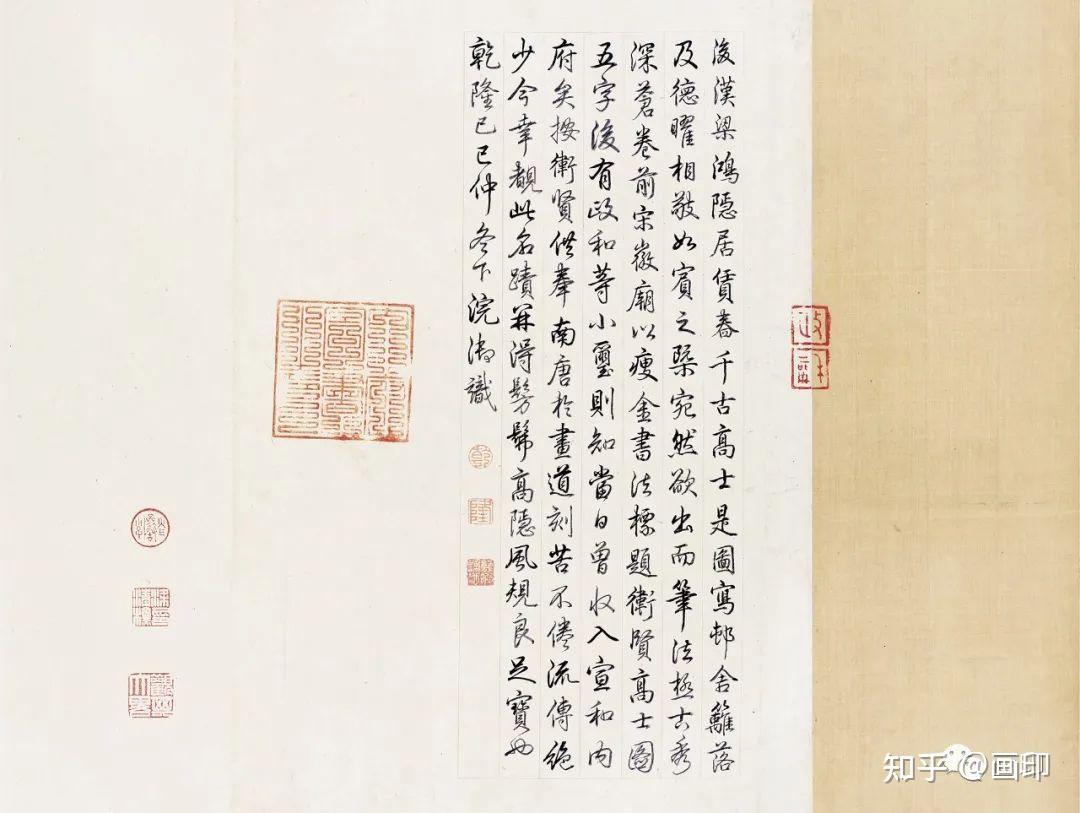 後漢梁鴻隱居賃舂千古高士是圖寫邨舍籬落
及德曜相敬如賓之槩宛然欲出而筆法極古秀
深蒼卷前宋徽廟以瘦金書法標題衛賢高士圖
五字後有政和等小璽則知當日曾收入宣和内
府矣按衛賢供奉南唐於畫道刻苦不倦流傳絶
少今幸覩此名蹟并得髣髴高隱風規良足寶也
乾隆己巳仲冬下浣御識
乾
隆
政和
知乎 @画印